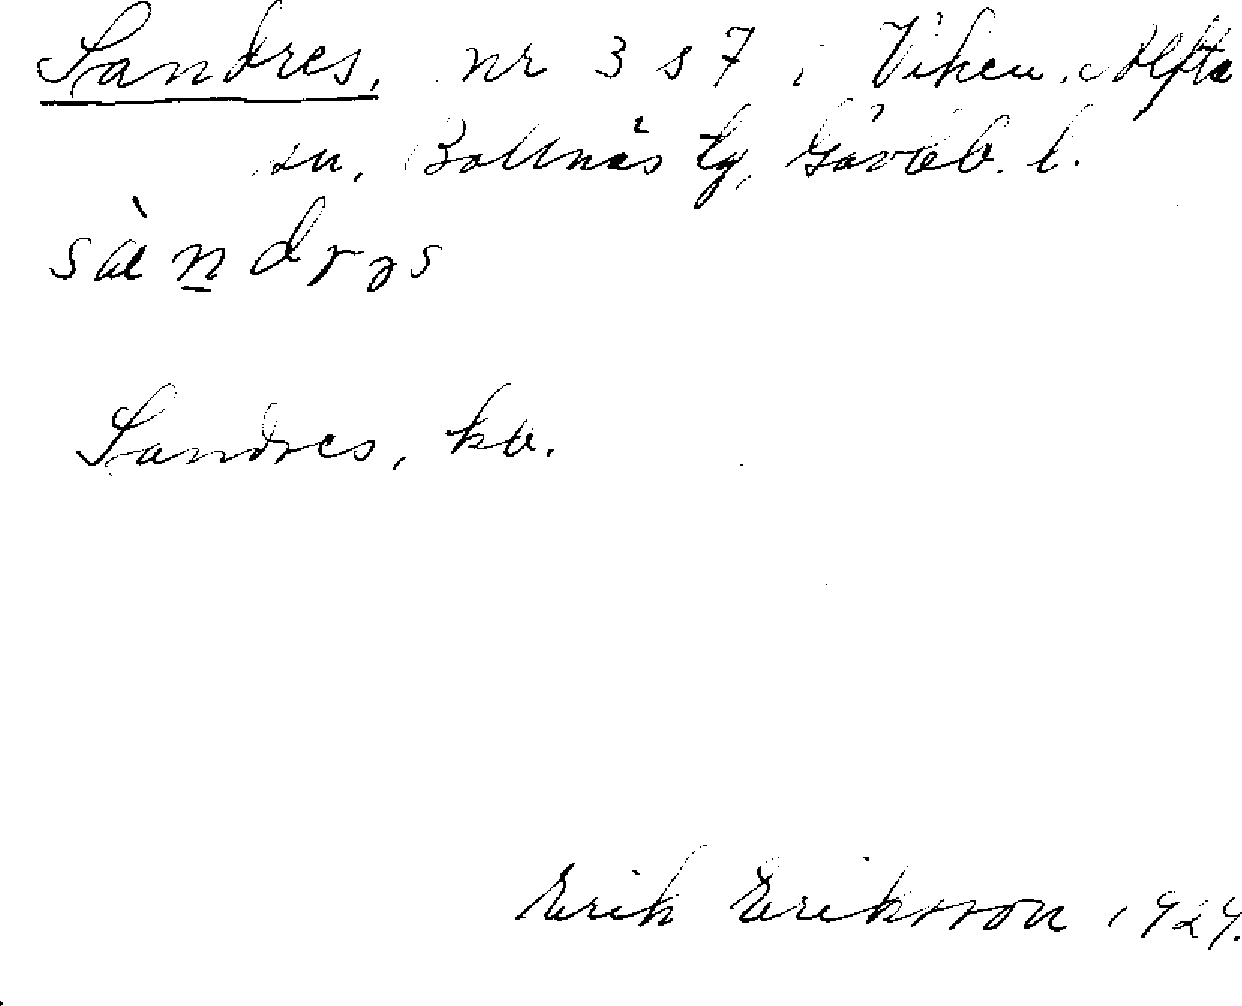 Sandres, nr 3 s 7 i Viken, Alfta
sn, Bollnäs tg, Gävleb. l.
sàndrəs
Sandres, ko.
Erik Eriksson 1929.